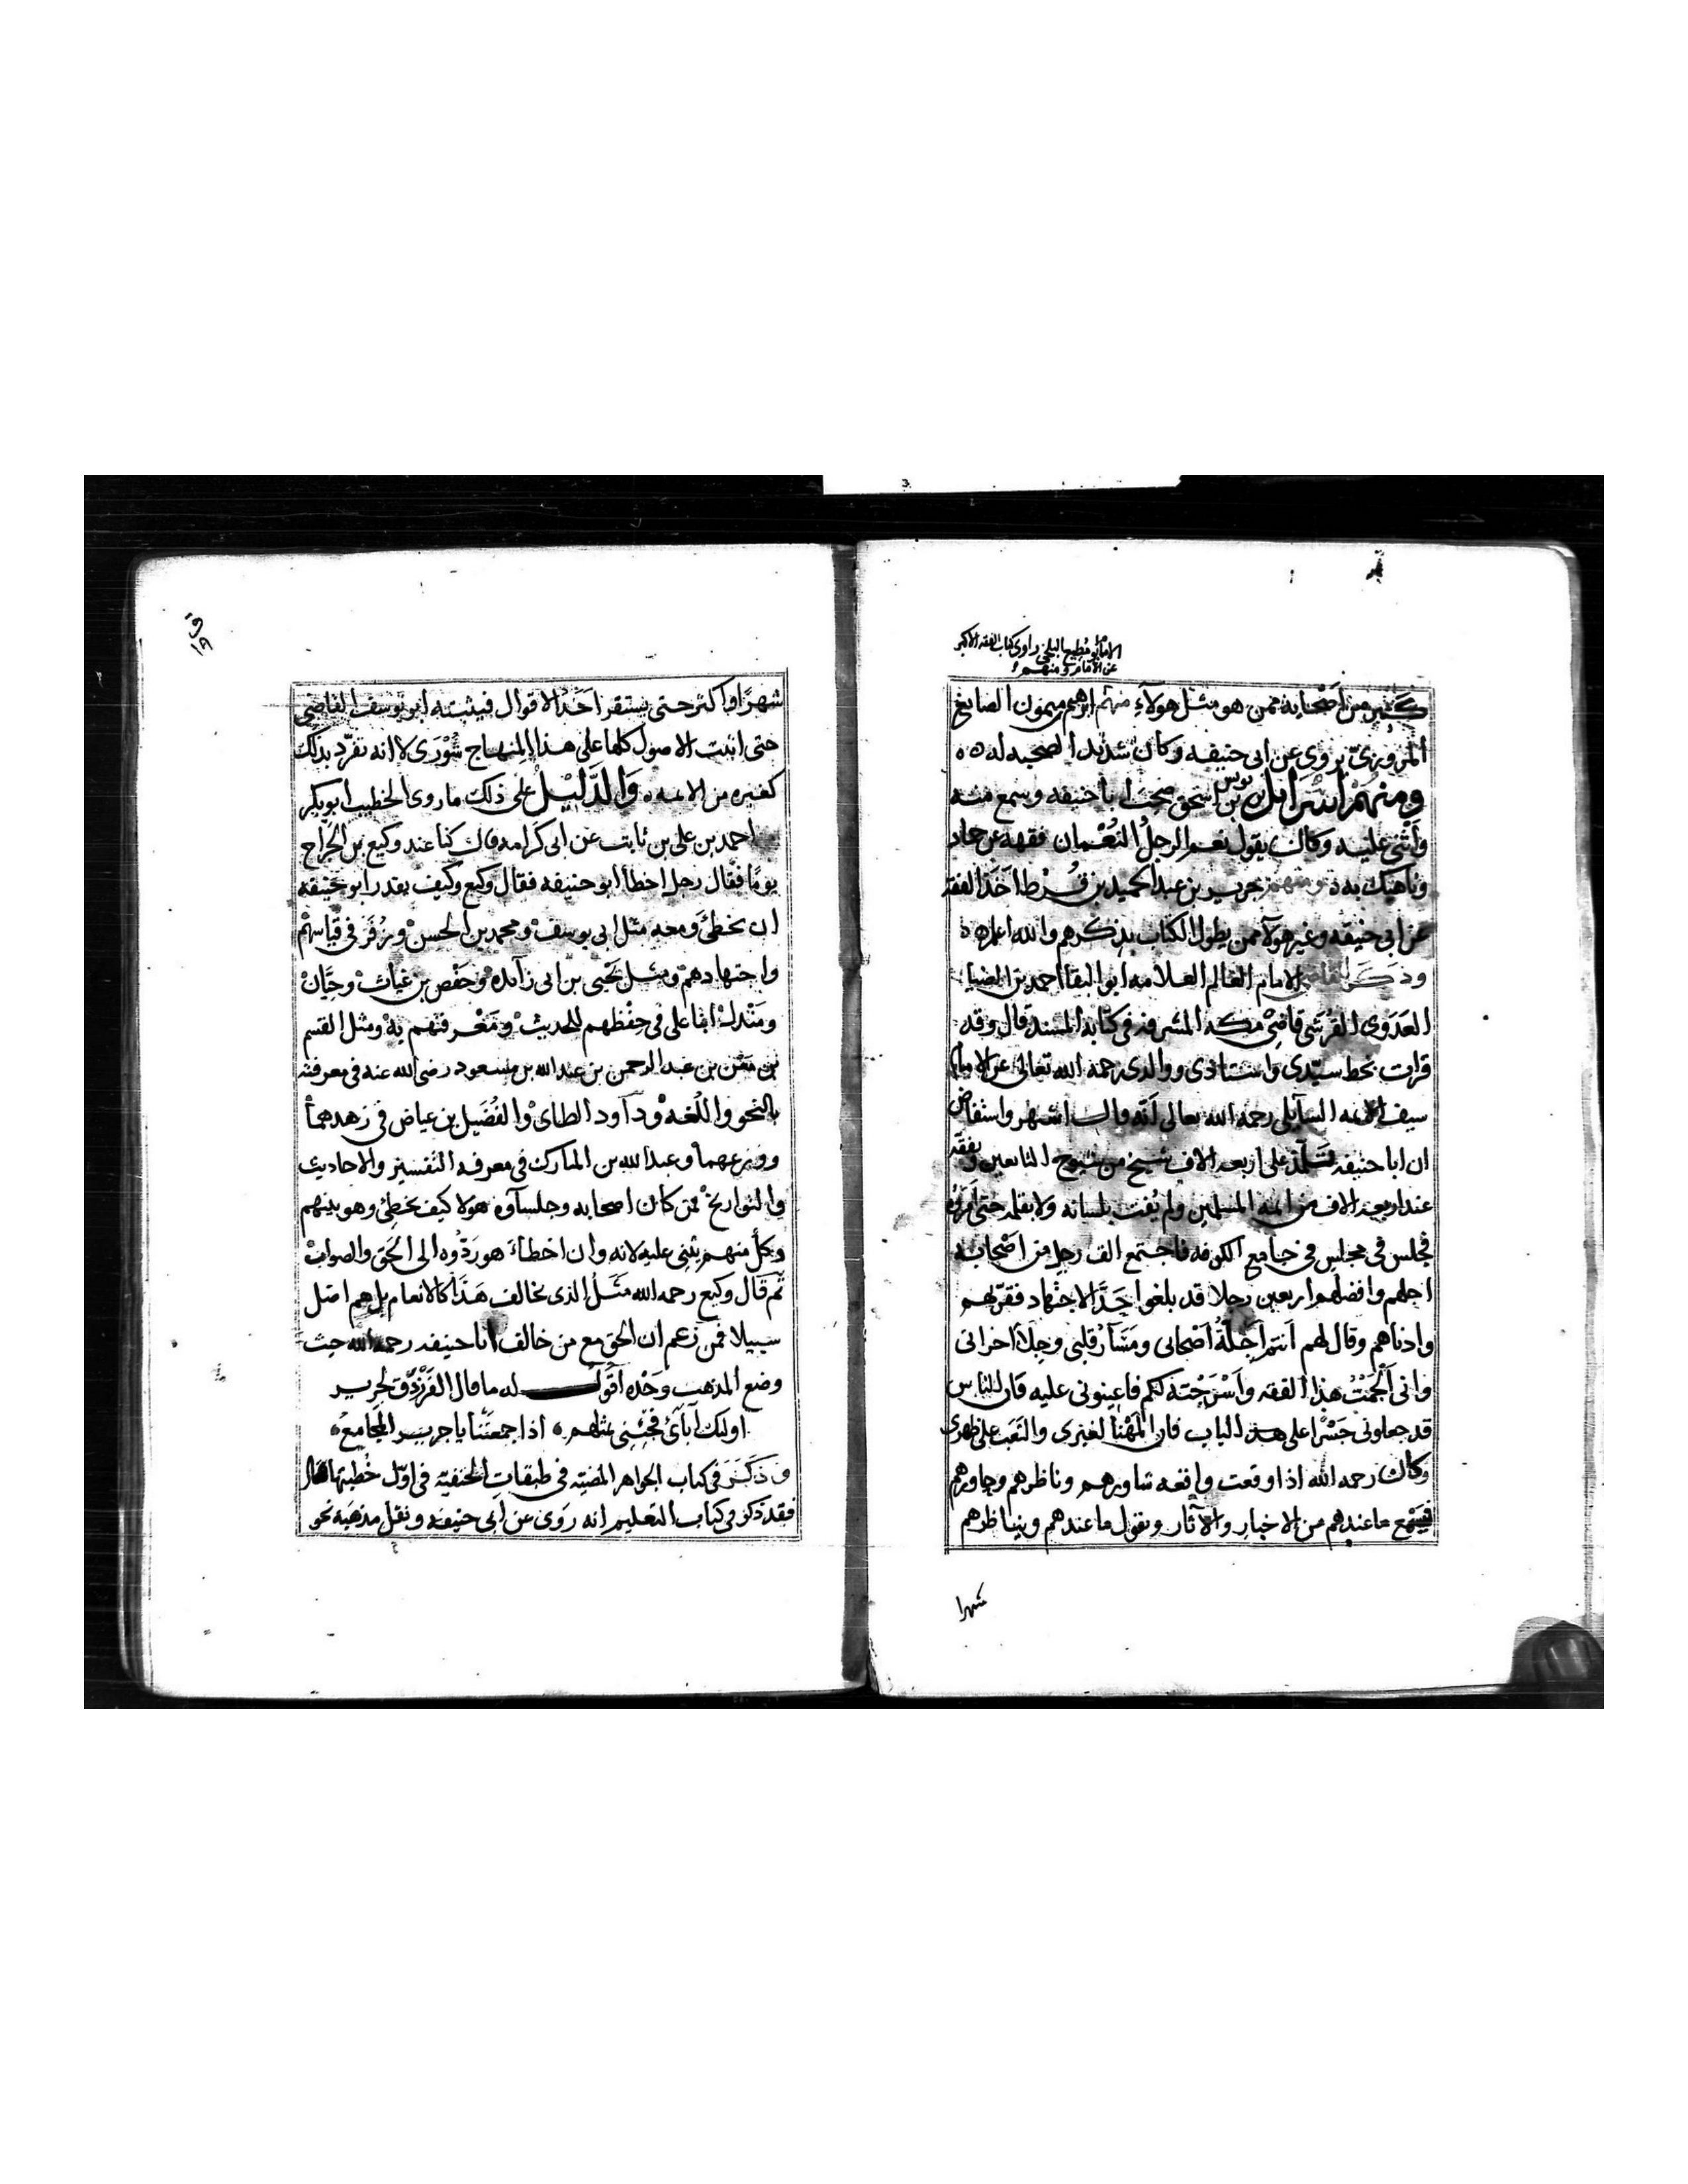 الامام ابو مطيع البلخي راوي كتاب الفقه الاكبر
عن الامام ومنهم
كثير من اصحابه ممن هو مثل هولاء منهم ابرهيم بن ميمون الصايغ
المروزي يروي عن ابى حنيفه وكان شديد الصحبه له ٥٥
ومنهم اسرائل بن يونس بن اسحق صحب ابا حنيفه وسمع منه
واثنى عليه وكان يقول نعم الرجل النعمان فقهه عن حماد
وناهيك به ٥ ومنهم جرير بن عبد الحميد بن قرط اخذ الفقه
عن ابى حنيفه وغير هولاء ممن يطول الكتاب بذكرهم والله اعلم ٥
وذكر القاضي الامام العالم العلامه ابو البقا احمد بن الضياء
العدوى القرشى قاضى مكه المشرفه فى كتابه المسند قال وقد
قرات بخط سيدى واستاذى ووالدى رحمه الله تعالى عن الامام
سيف الايمه السايلى رحمه الله تعالى انه قال اشتهر واستفاض
ان ابا حنيفه تتلمذ على اربعه الاف شيخ من شيوخ التابعين وتفقه
عند اربعه الاف من ايمه المسلمين ولم يفت بلسانه ولا بقلمه حتى امروه
فجلس فى مجلس فى جامع الكوفه فاجتمع الف رجل من اصحابه
اجلهم وافضلهم اربعين رجلا قد بلغوا حد الاجتهاد فقربهم
وادناهم وقال لهم انتم اجلة اصحابى ومسار قلبى وجلا احزانى
وانى الجمت هذا الفقه واسرجته لكم فاعينونى عليه فان الناس
قد جعلونى جسرا على هذا الباب فان المهنا لغيرى والتعب على ظهرى
وكان رحمه الله اذا وقعت واقعه شاورهم وناظرهم وحاورهم
فيسمع ما عندهم من الاخبار والاثار ويقول ما عندهم ويناظرهم
شهرا
ق
١٨
شهرا او اكثر حتى يستقر احد الاقوال فيثبته ابو يوسف القاضى
حتى اثبت الاصول كلها على هذا المنهاج شورى لا انه تفرد بذلك
كغيره من الايمه ٥ والدليل على ذلك ما روى الخطيب ابو بكر
احمد بن على بن ثابت عن ابى كرامه قال كنا عند وكيع بن الجراح
يوما فقال رجل اخطا ابو حنيفه فقال وكيع وكيف يقدر ابو حنيفه
ان يخطئ ومعه مثل ابى يوسف ومحمد بن الحسن وزفر فى قياسهم
واجتهادهم ومثل يحيى بن ابى زايده وحفص بن غياث وحبان
ومندل ابنا على فى حفظهم للحديث ومعرفتهم به ومثل القسم
بن معن بن عبد الرحمن بن عبد الله بن مسعود رضى الله عنه فى معرفته
بالنحو واللغه وداود الطاى والفضيل بن عياض فى زهدهما
وورعهما وعبد الله بن المبارك فى معرفه التفسير والاحاديث
والتواريخ فمن كان اصحابه وجلساوه هولا كيف يخطئ وهو بينهم
وكل منهم يثنى عليه لانه وان اخطاء هو ردوه الى الحق والصواب
ثم قال وكيع رحمه الله مثل الذى يخالف هذا كالانعام بل هم اضل
سبيلا فمن زعم ان الحق مع من خالف ابا حنيفه رحمه الله حيث
وضع المذهب وحده اقول له ما قال الفرزدق لجرير
اولئك آبائى فجئنى بمثلهم ٥ اذا جمعتنا يا جرير المجامع ٥
وذكر فى كتاب الجواهر المضيه فى طبقات الحنفيه فى اول خطبتها قال
فقد ذكر فى كتاب التعليم انه روى عن ابى حنيفه ونقل مذهبه نحو